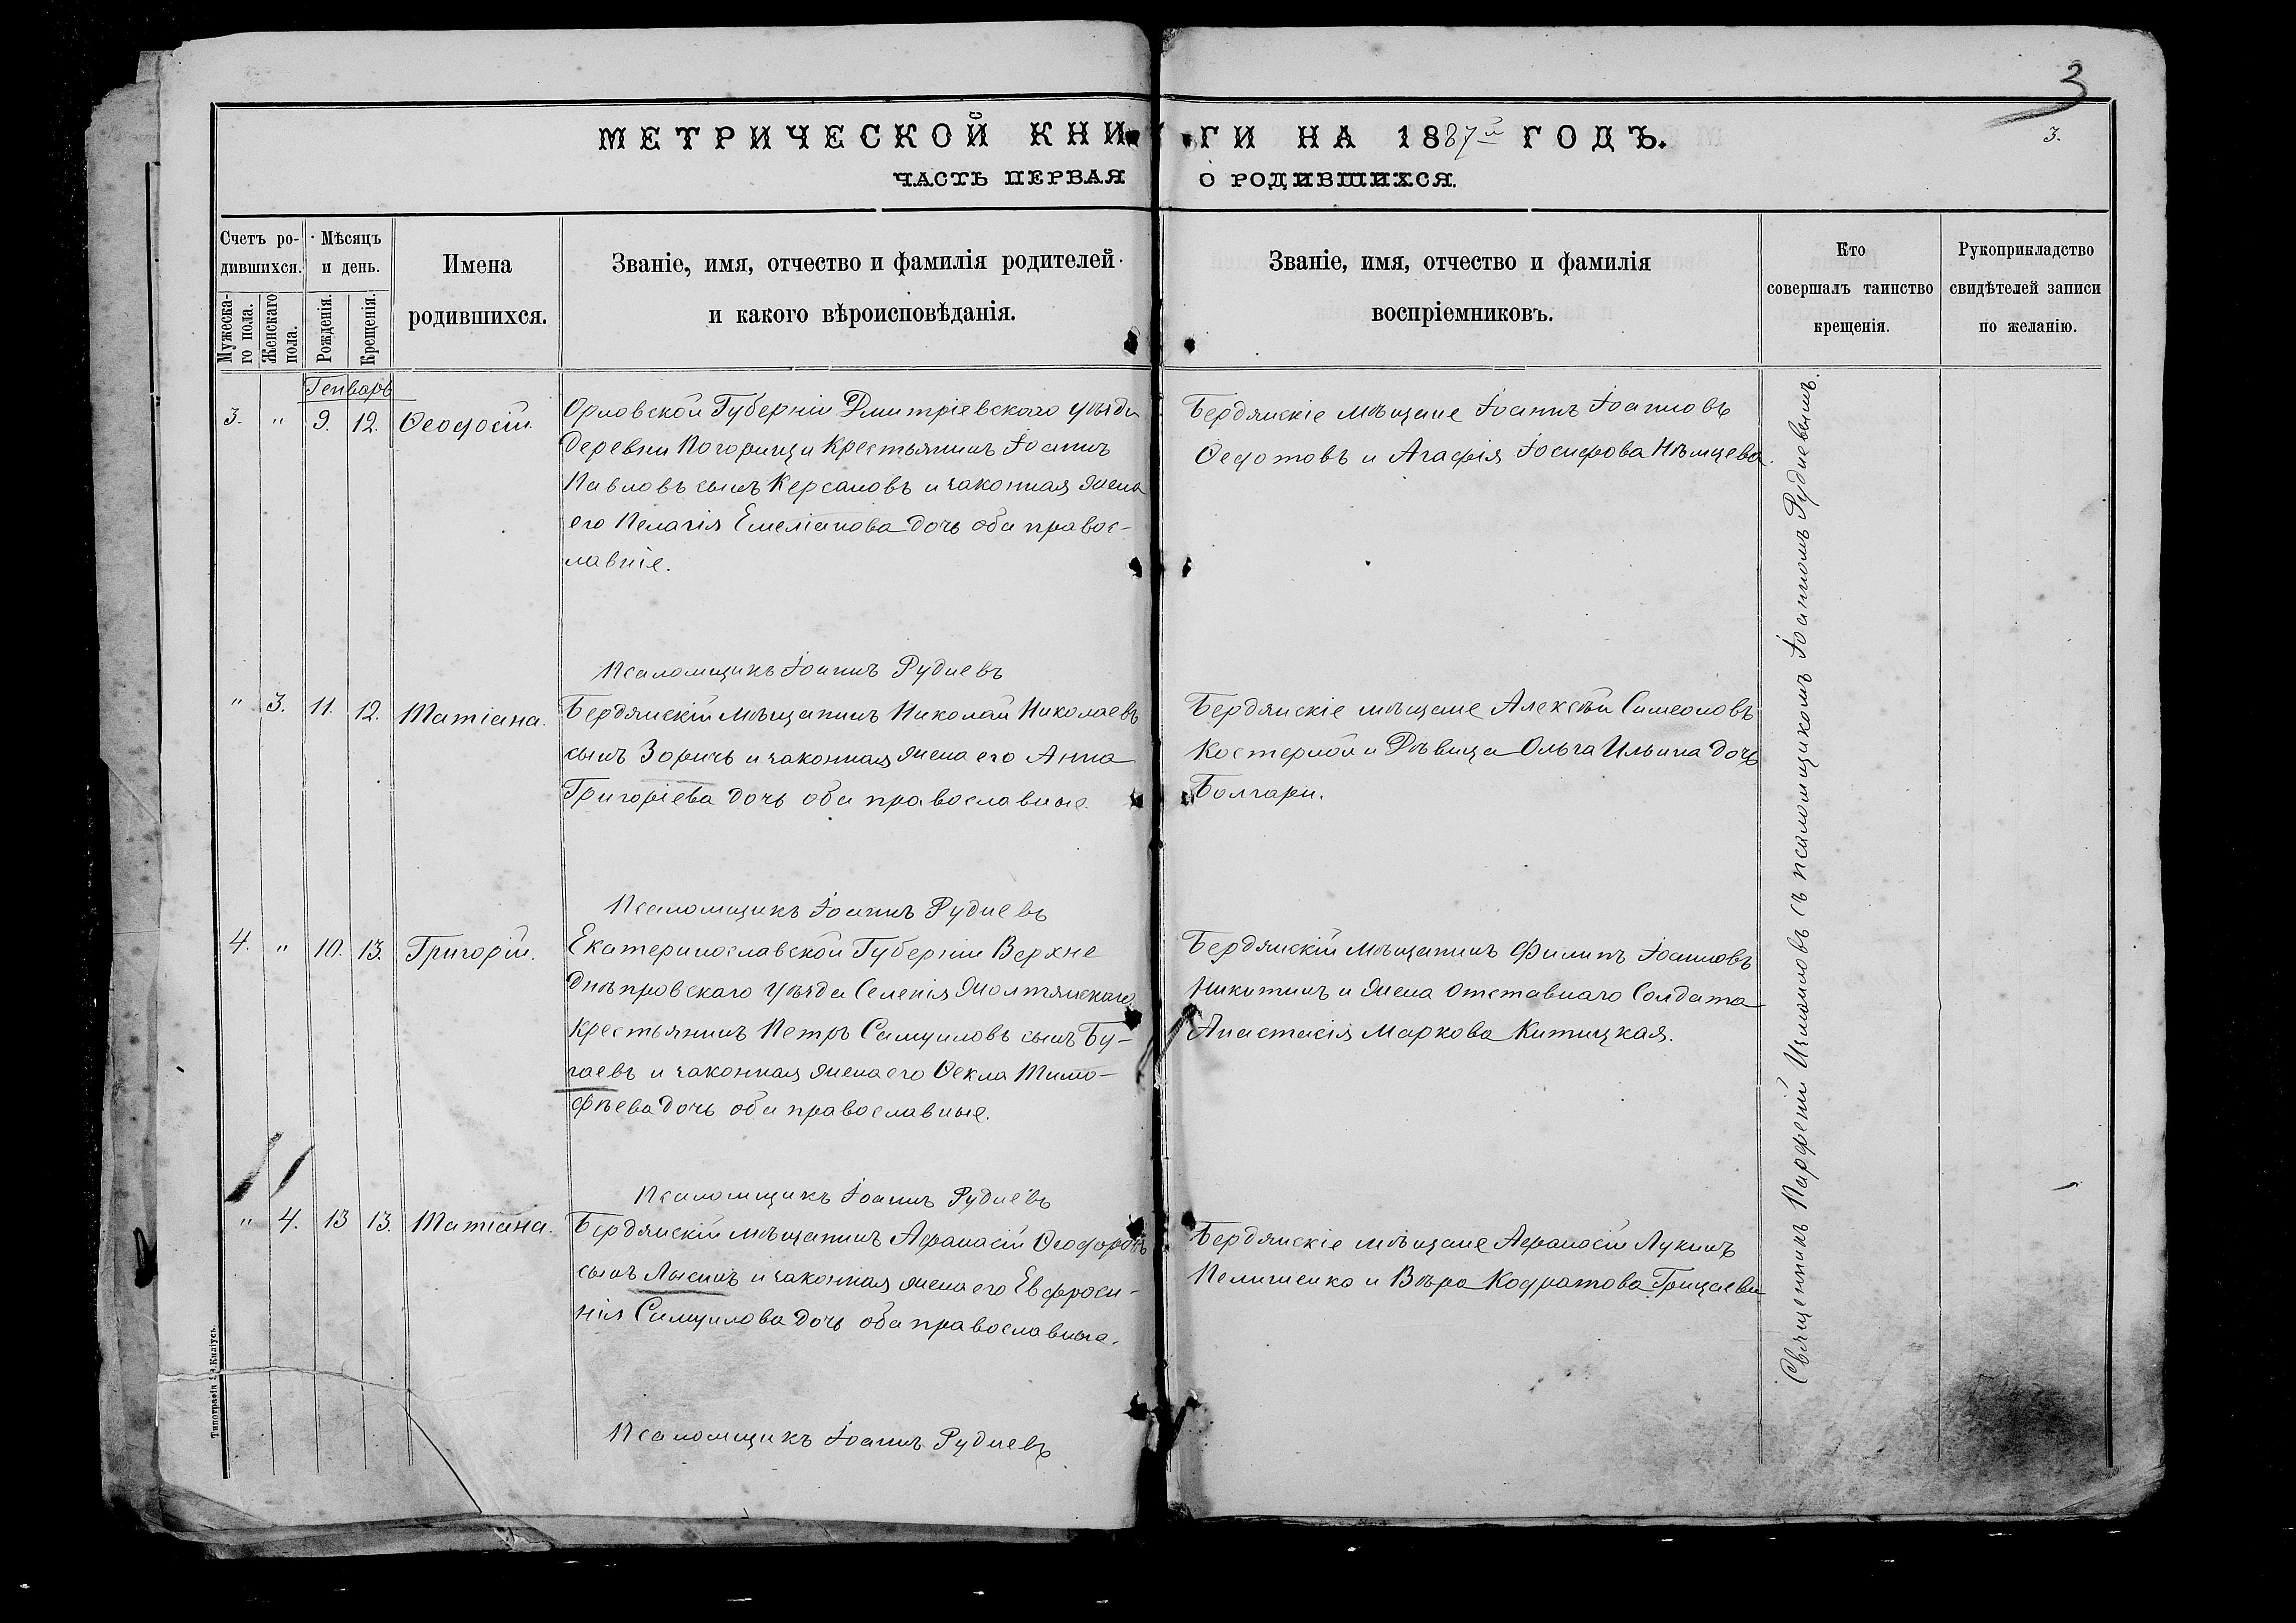 3
МЕТРИЧЕСКОЙ КНИГИ НА 1887й ГОДЪ.
3.
ЧАСТЬ ПЕРВАЯ О РОДИВШИХСЯ.
Счетъ ро-
дившихся.
Мужеска-
го пола.
Женскаго
пола.
Мѣсяцъ
и день.
Рожденія.
Крещенія.
Имена
родившихся.
Званіе, имя, отчество и фамилія родителей
и какого вѣроисповѣданія.
Званіе, имя, отчество и фамилія
воспріемниковъ.
Кто
совершалъ таинство
крещенія.
Рукоприкладство
свидѣтелей записи
по желанію.
Генварь
3. " 9. 12. Ѳеодосій.
Орловской Губерніи Дмитріевскаго уѣзда
деревни Погорищи Крестьянинъ Іоаннъ
Павловъ сынъ Керсановъ и законная жена
его Пелагія Емеліанова дочь оба правос-
лавніе.
Псаломщикъ Іоаннъ Рудневъ
Бердянскіе мѣщане Іоаннъ Іоанновъ
Ѳедотовъ и Агафія Іосифова Нѣмцева.
" 3. 11. 12. Татіана.
Бердянскій мѣщанинъ Николай Николаевъ
сынъ Зоричь и законная жена его Анна
Григоріева дочь оба православные.
Псаломщикъ Іоаннъ Рудневъ
Бердянскіе мѣщане Алексѣй Симеоновъ
Костерной и Дѣвица Ольга Ильина дочь
Болгари.
4. " 10. 13. Григорій.
Екатеринославской Губерніи Верхне
днѣпровскаго уѣзда Селенія Жолтянскаго
Крестьянинъ Петръ Самуиловъ сынъ Бу-
гаевъ и законная жена его Ѳекла Тимо-
фѣева дочь оба православные.
Псаломщикъ Іоаннъ Рудневъ
Бердянскій мѣщанинъ Филипъ Іоанновъ
Никитинъ и жена отставнаго Солдата
Анастасія Маркова Китицкая.
" 4. 13 13. Татіана.
Бердянскій мѣщанинъ Афанасій Ѳеодоровъ
сынъ Лысинъ и законная жена его Евфроси-
нія Самуилова дочь оба православные.
Псаломщикъ Іоаннъ Рудневъ
Бердянскіе мѣщане Афанасій Лукинъ
Пелишенко и Вѣра Кодратова Грицаева
Священникъ Парфеній Измаловъ съ псаломщикомъ Іоанномъ Рудневымъ.
Типографія Килусъ.